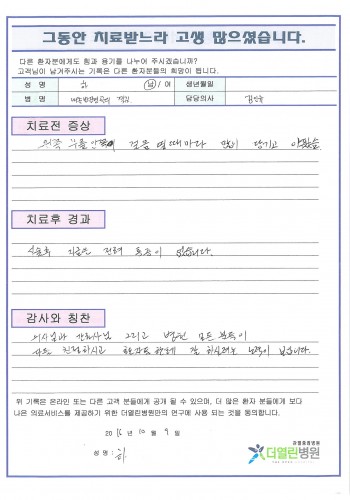 그동안 치료받느라 고생 많으셨습니다.
다른 환자분에게도 힘과 용기를 나누어 주시겠습니까?
고객님이 남겨주시는 기록은 다른 환자분들의 희망이 됩니다.
성 명 하 남 / 여 생년월일
병 명 담당의사
치료전 증상
왼쪽 무릎 안쪽이 걸음 뗄때마다 많이 당기고 아팠음
치료후 경과
수술후 지금은 전혀 통증이 없습니다.
감사와 칭찬
의사님과 간호사님 그리고 병원 모든 분들이
모두 친절하시고 환자와 함께 잘 하실려는 노력이 보입니다.
위 기록은 온라인 또는 다른 고객 분들에게 공개 될 수 있으며, 더 많은 환자 분들에게 보다
나은 의료서비스를 제공하기 위한 더열린병원만의 연구에 사용 되는 것을 동의합니다.
2016 년 10 월 9 일
성 명 : 하
관절중점병원
더열린병원